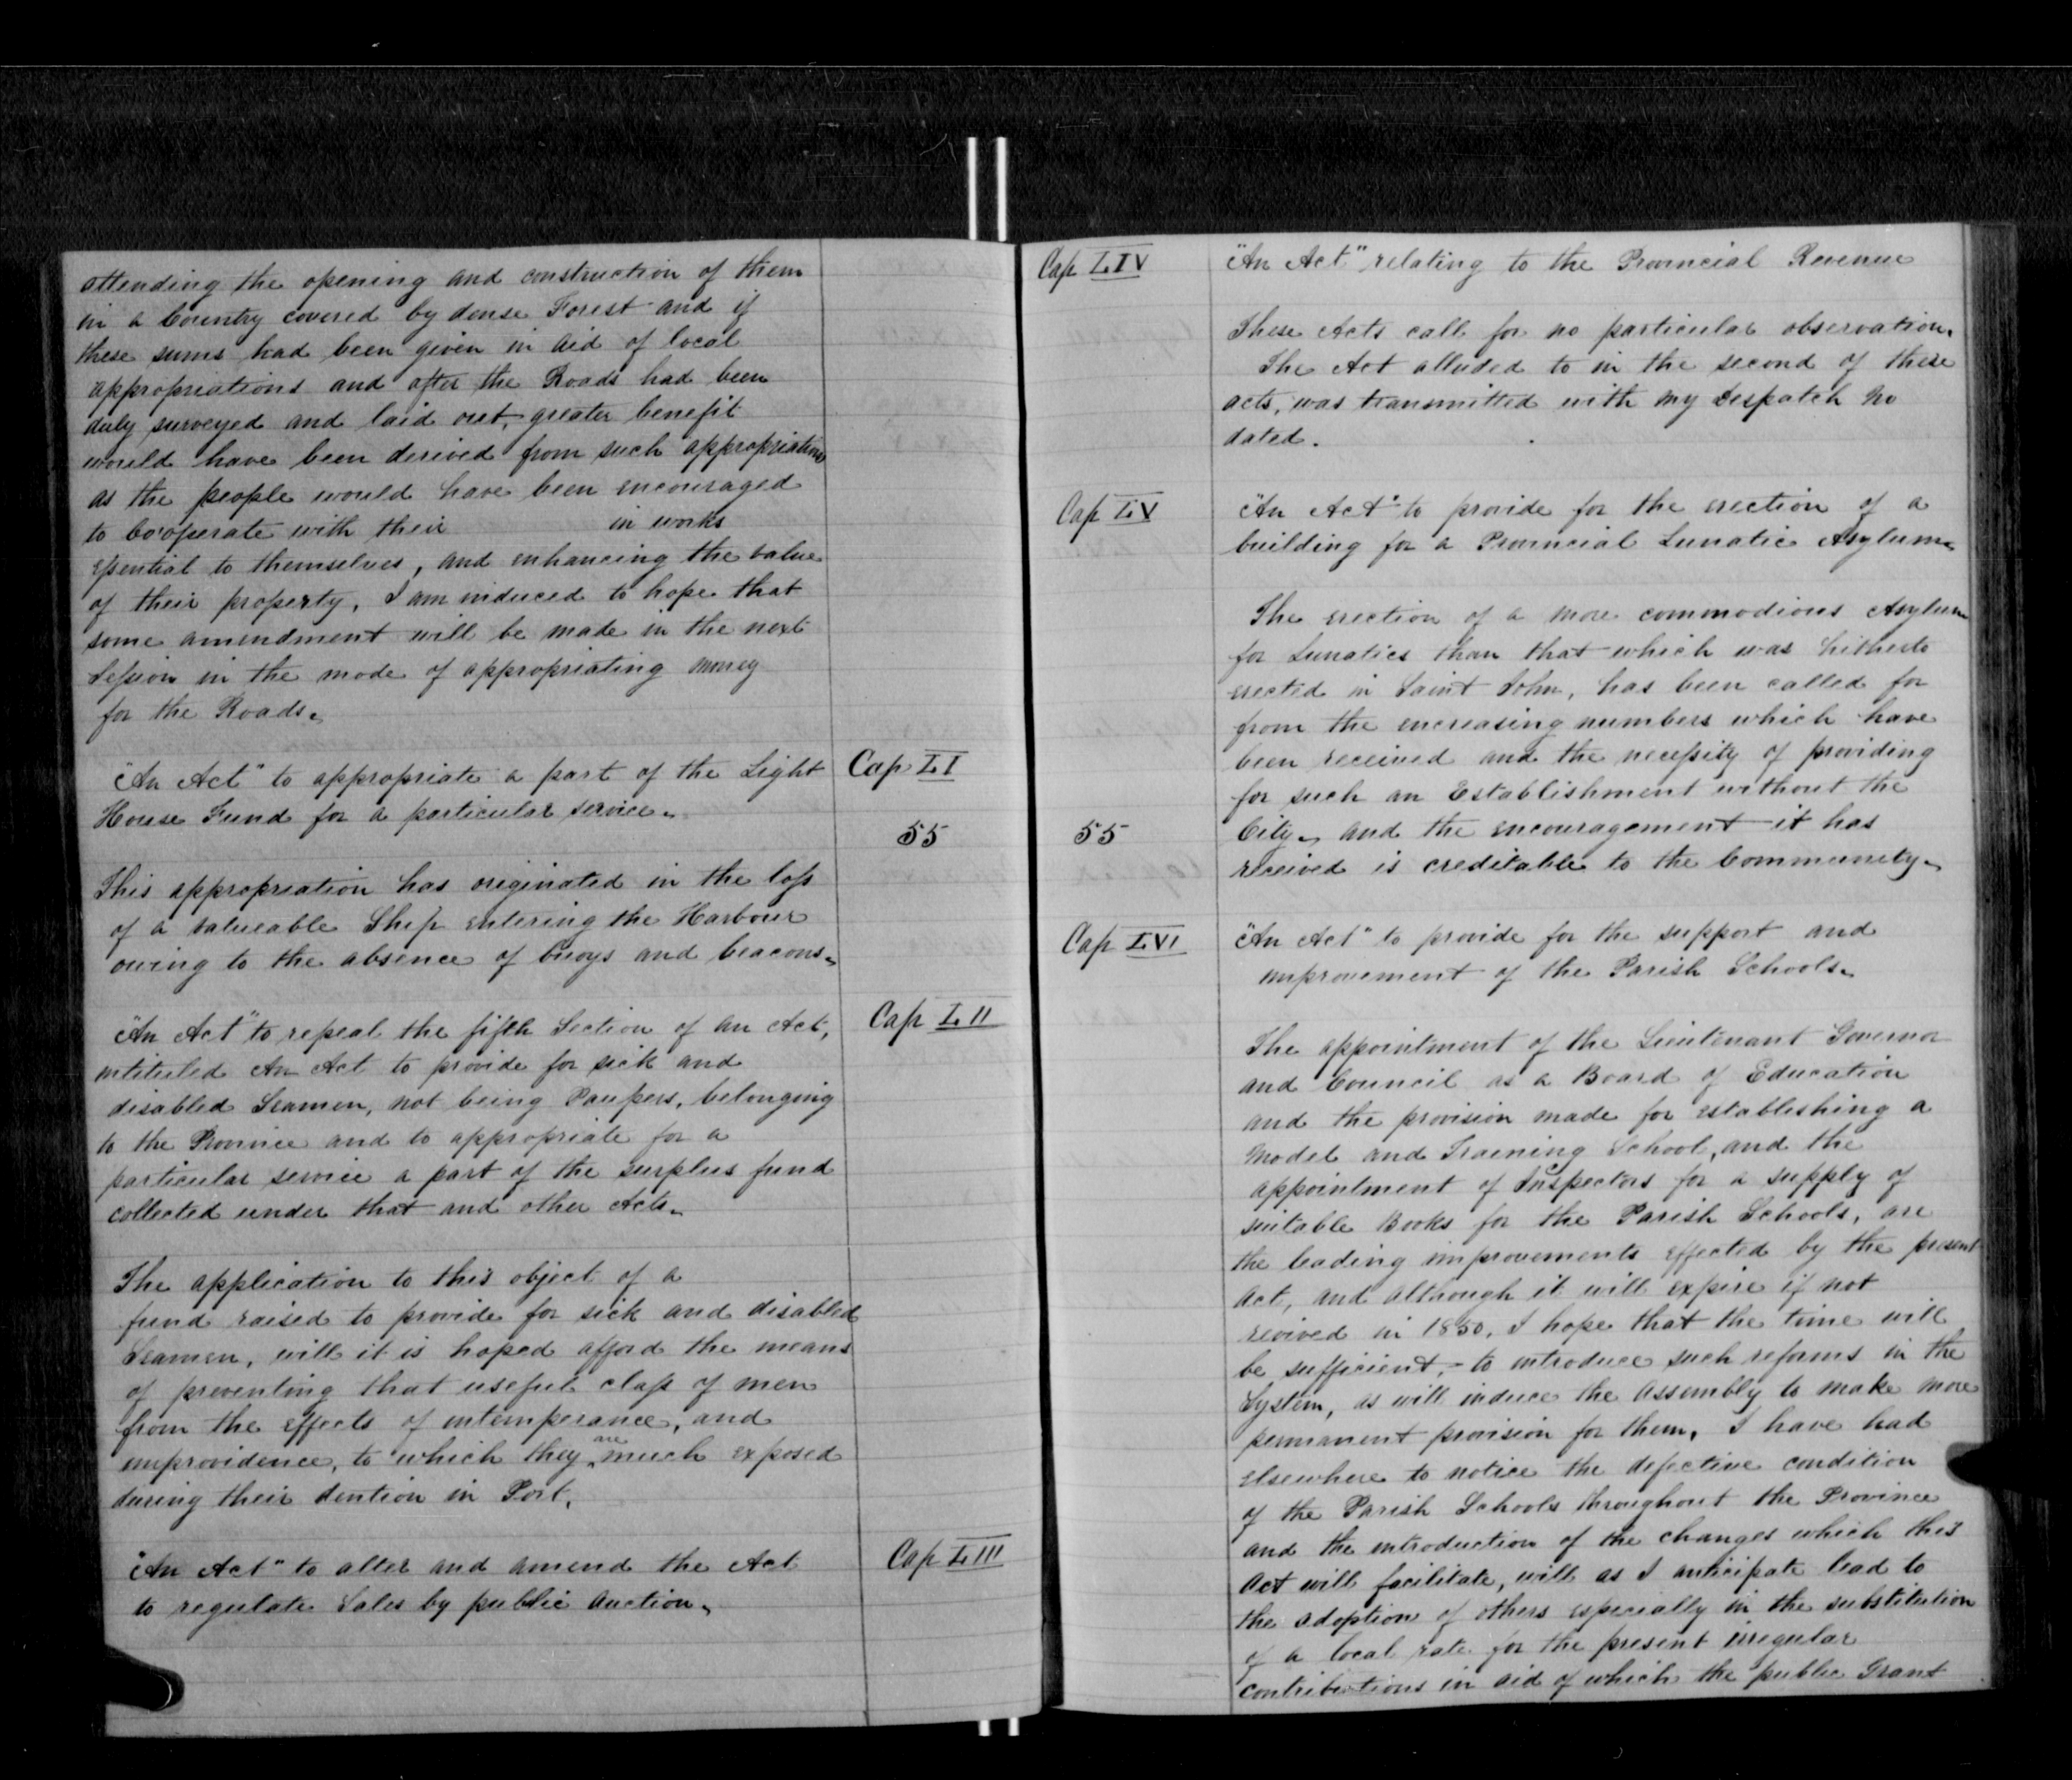 attending the opening and construction of them
in a Country covered by dense Forest and if
these sums had been given in aid of local
appropriations and after the Roads had been
duly surveyed and laid out, greater benefit
would have been derived from such appropriations
as the people would have been encouraged
to Co'operate with their in works
essential to themselves, and enhancing the value
of their property, I am induced to hope that
some amendment will be made in the next
Session in the mode of appropriating money
for the Roads.
"An Act" to appropriate a part of the Light Cap LI
House Fund for a particular service.
55
This appropriation has originated in the loss
of a valueable Ship entering the Harbour
owing to the absence of buoys and beacons.
"An Act" to repeal the fifth Section of an Act, Cap LII
intituled An Act to provide for sick and
disabled Seamen, not being Paupers, belonging
to the Province and to appropriate for a
particular service a part of the surplus fund
collected under that and other Acts.
The application to this object of a
fund raised to provide for sick and disabled
Seamen, will it is hoped afford the means
of preventing that useful class of men
from the effects of intemperance, and
improvidence, to which they are much exposed
during their dention in Port.
"An Act" to alter and amend the Act Cap LIII
to regulate Sales by public Auction.
Cap LIV "An Act" relating to the Provincial Revenue
These Acts call for no particular observation.
The Act alluded to in the second of these
acts, was transmitted with my Despatch No
dated.
Cap LV "An Act" to provide for the erection of a
building for a Provincial Lunatic Asylum.
The erection of a more commodious Asylum
for Lunatics than that which was hitherto
erected in Saint John, has been called for
from the encreasing numbers which have
been received and the necessity of providing
for such an Establishment without the
55 City. and the encouragement it has
received is creditable to the Community.
Cap LVI "An Act" to provide for the support and
improvement of the Parish Schools.
The appointment of the Lieutenant Governor
and Council as a Board of Education
and the provision made for establishing a
Model and Training School, and the
appointment of Inspectors for a supply of
suitable Books for the Parish Schools, are
the leading improvements effected by the present
Act, and although it will expire if not
revived in 1850, I hope that the time will
be sufficient, to introduce such reforms in the
System, as will induce the Assembly to make more
permanent provision for them, I have had
elsewhere to notice the defective condition
of the Parish Schools throughout the Province
and the introduction of the changes which this
Act will facilitate, will as I anticipate lead to
the adoption of others especially in the substitution
of a local rate for the present irregular
contributions in aid of which the public Grant